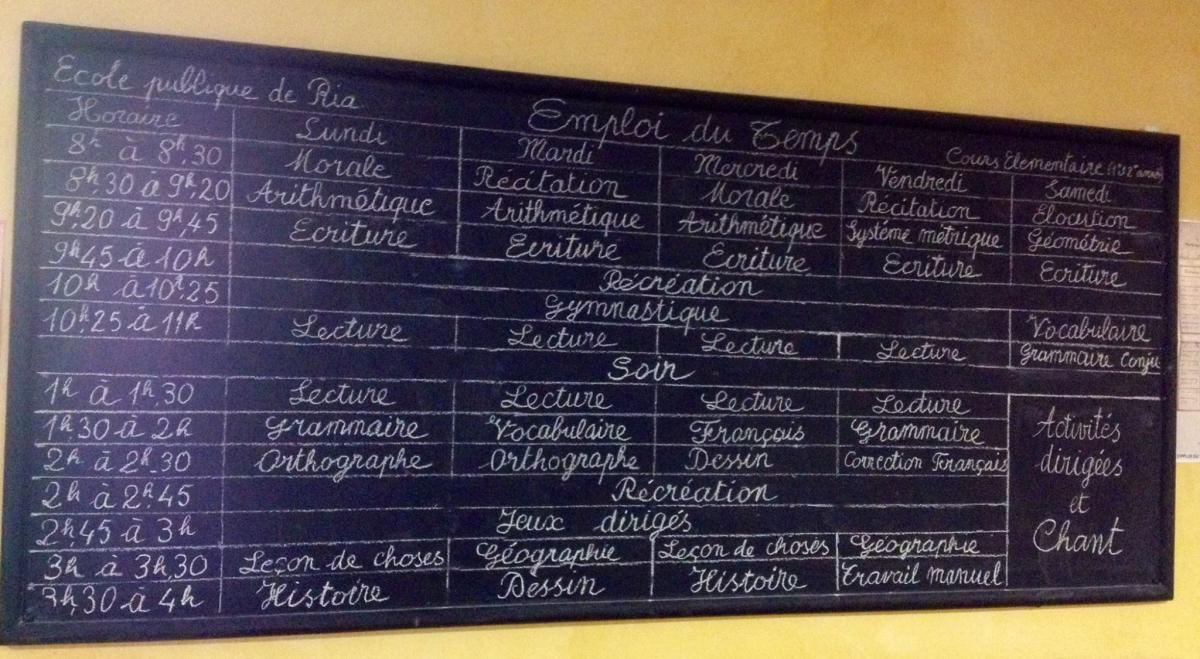 Ecole publique de Ria
Emploi du Temps
Cours Elementaire (1e & 2e année)
Horaire Lundi Mardi Mercredi Vendredi Samedi
8h à 8h,30 Morale Récitation Morale Récitation Elocution
8h30 à 9h,20 Arithmétique Arithmétique Arithmétique Système métrique Géométrie
9h,20 à 9h,45 Ecriture Ecriture Ecriture Ecriture Ecriture
9h45 à 10h Récréation
10h à 10h,25 Gymnastique Vocabulaire
10h,25 à 11h Lecture Lecture Lecture Lecture Grammaire Conju
Soir
1h à 1h,30 Lecture Lecture Lecture Lecture
1h,30 à 2h Grammaire Vocabulaire Français Grammaire Activités
2h à 2h,30 Orthographe Orthographe Dessin Correction Français dirigées
2h à 2h,45 Récréation et
2h45 à 3h Jeux dirigés Chant
3h à 3h,30 Leçon de choses Géographie Leçon de choses Géographie
3h,30 à 4h Histoire Dessin Histoire Travail manuel